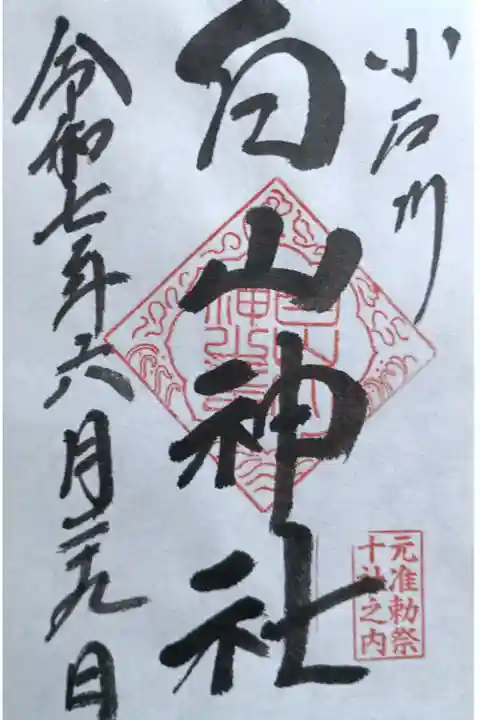 小石川
白山神社
令和七年六月二十九日
元准勅祭
十社之内